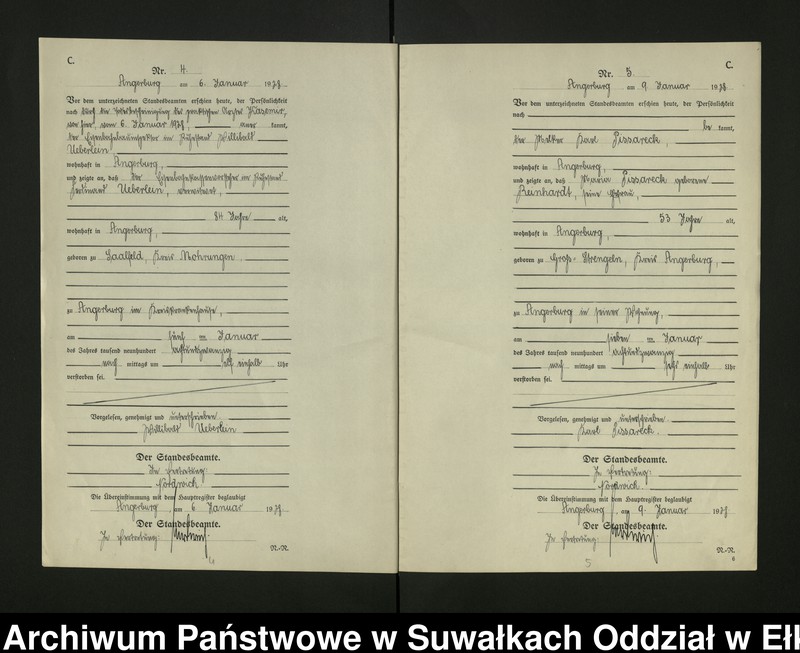 C.
Nr. 4.
Angerburg am 6. Januar 1928
Vor dem unterzeichneten Standesbeamten erschien heute, der Persönlichkeit
nach durch die des praktischen Arztes
vom 6. Januar 1928, kannt,
der im Ruhestand Willibald
Ueberlein
wohnhaft in Angerburg,
und zeigte an, daß der im Ruhestand
Ferdinand Ueberlein, verwitwet,
84 Jahre alt,
wohnhaft in Angerburg,
geboren zu Saalfeld, Kreis Mohrungen
zu Angerburg im Kreiskrankenhause,
am fünf ten Januar
des Jahres tausend neunhundert achtundzwanzig
nach mittags um elf einhalb Uhr
verstorben sei.
Vorgelesen, genehmigt und unterschrieben
Willibald Ueberlein
Der Standesbeamte.
In Vertretung:
Nordwich
Die Übereinstimmung mit dem Hauptregister beglaubigt
Angerburg, am 6 Januar 1928
Der Standesbeamte.
In Vertretung:
N-N
4
C.
Nr. 5
Angerburg am 9 Januar 1928
Vor dem unterzeichneten Standesbeamten erschien heute, der Persönlichkeit
nach
be kannt,
der Karl Pissareck,
wohnhaft in Angerburg,
und zeigte an, daß Pissareck geborene
Reinhardt, seine Ehefrau,
53 Jahre alt,
wohnhaft in Angerburg,
geboren zu Groß-Strengeln, Kreis Angerburg,
zu Angerburg in seiner Wohnung,
am sieben ten Januar
des Jahres tausend neunhundert achtundzwanzig
nach mittags um zehn einhalb Uhr
verstorben sei.
Vorgelesen, genehmigt und unterschrieben
Karl Pissareck.
Der Standesbeamte.
In Vertretung:
Nordwich
Die Übereinstimmung mit dem Hauptregister beglaubigt
Angerburg, am 9. Januar 1928
Der Standesbeamte.
In Vertretung:
N-N
6
5
Archiwum Państwowe w Suwałkach Oddział w Ełk